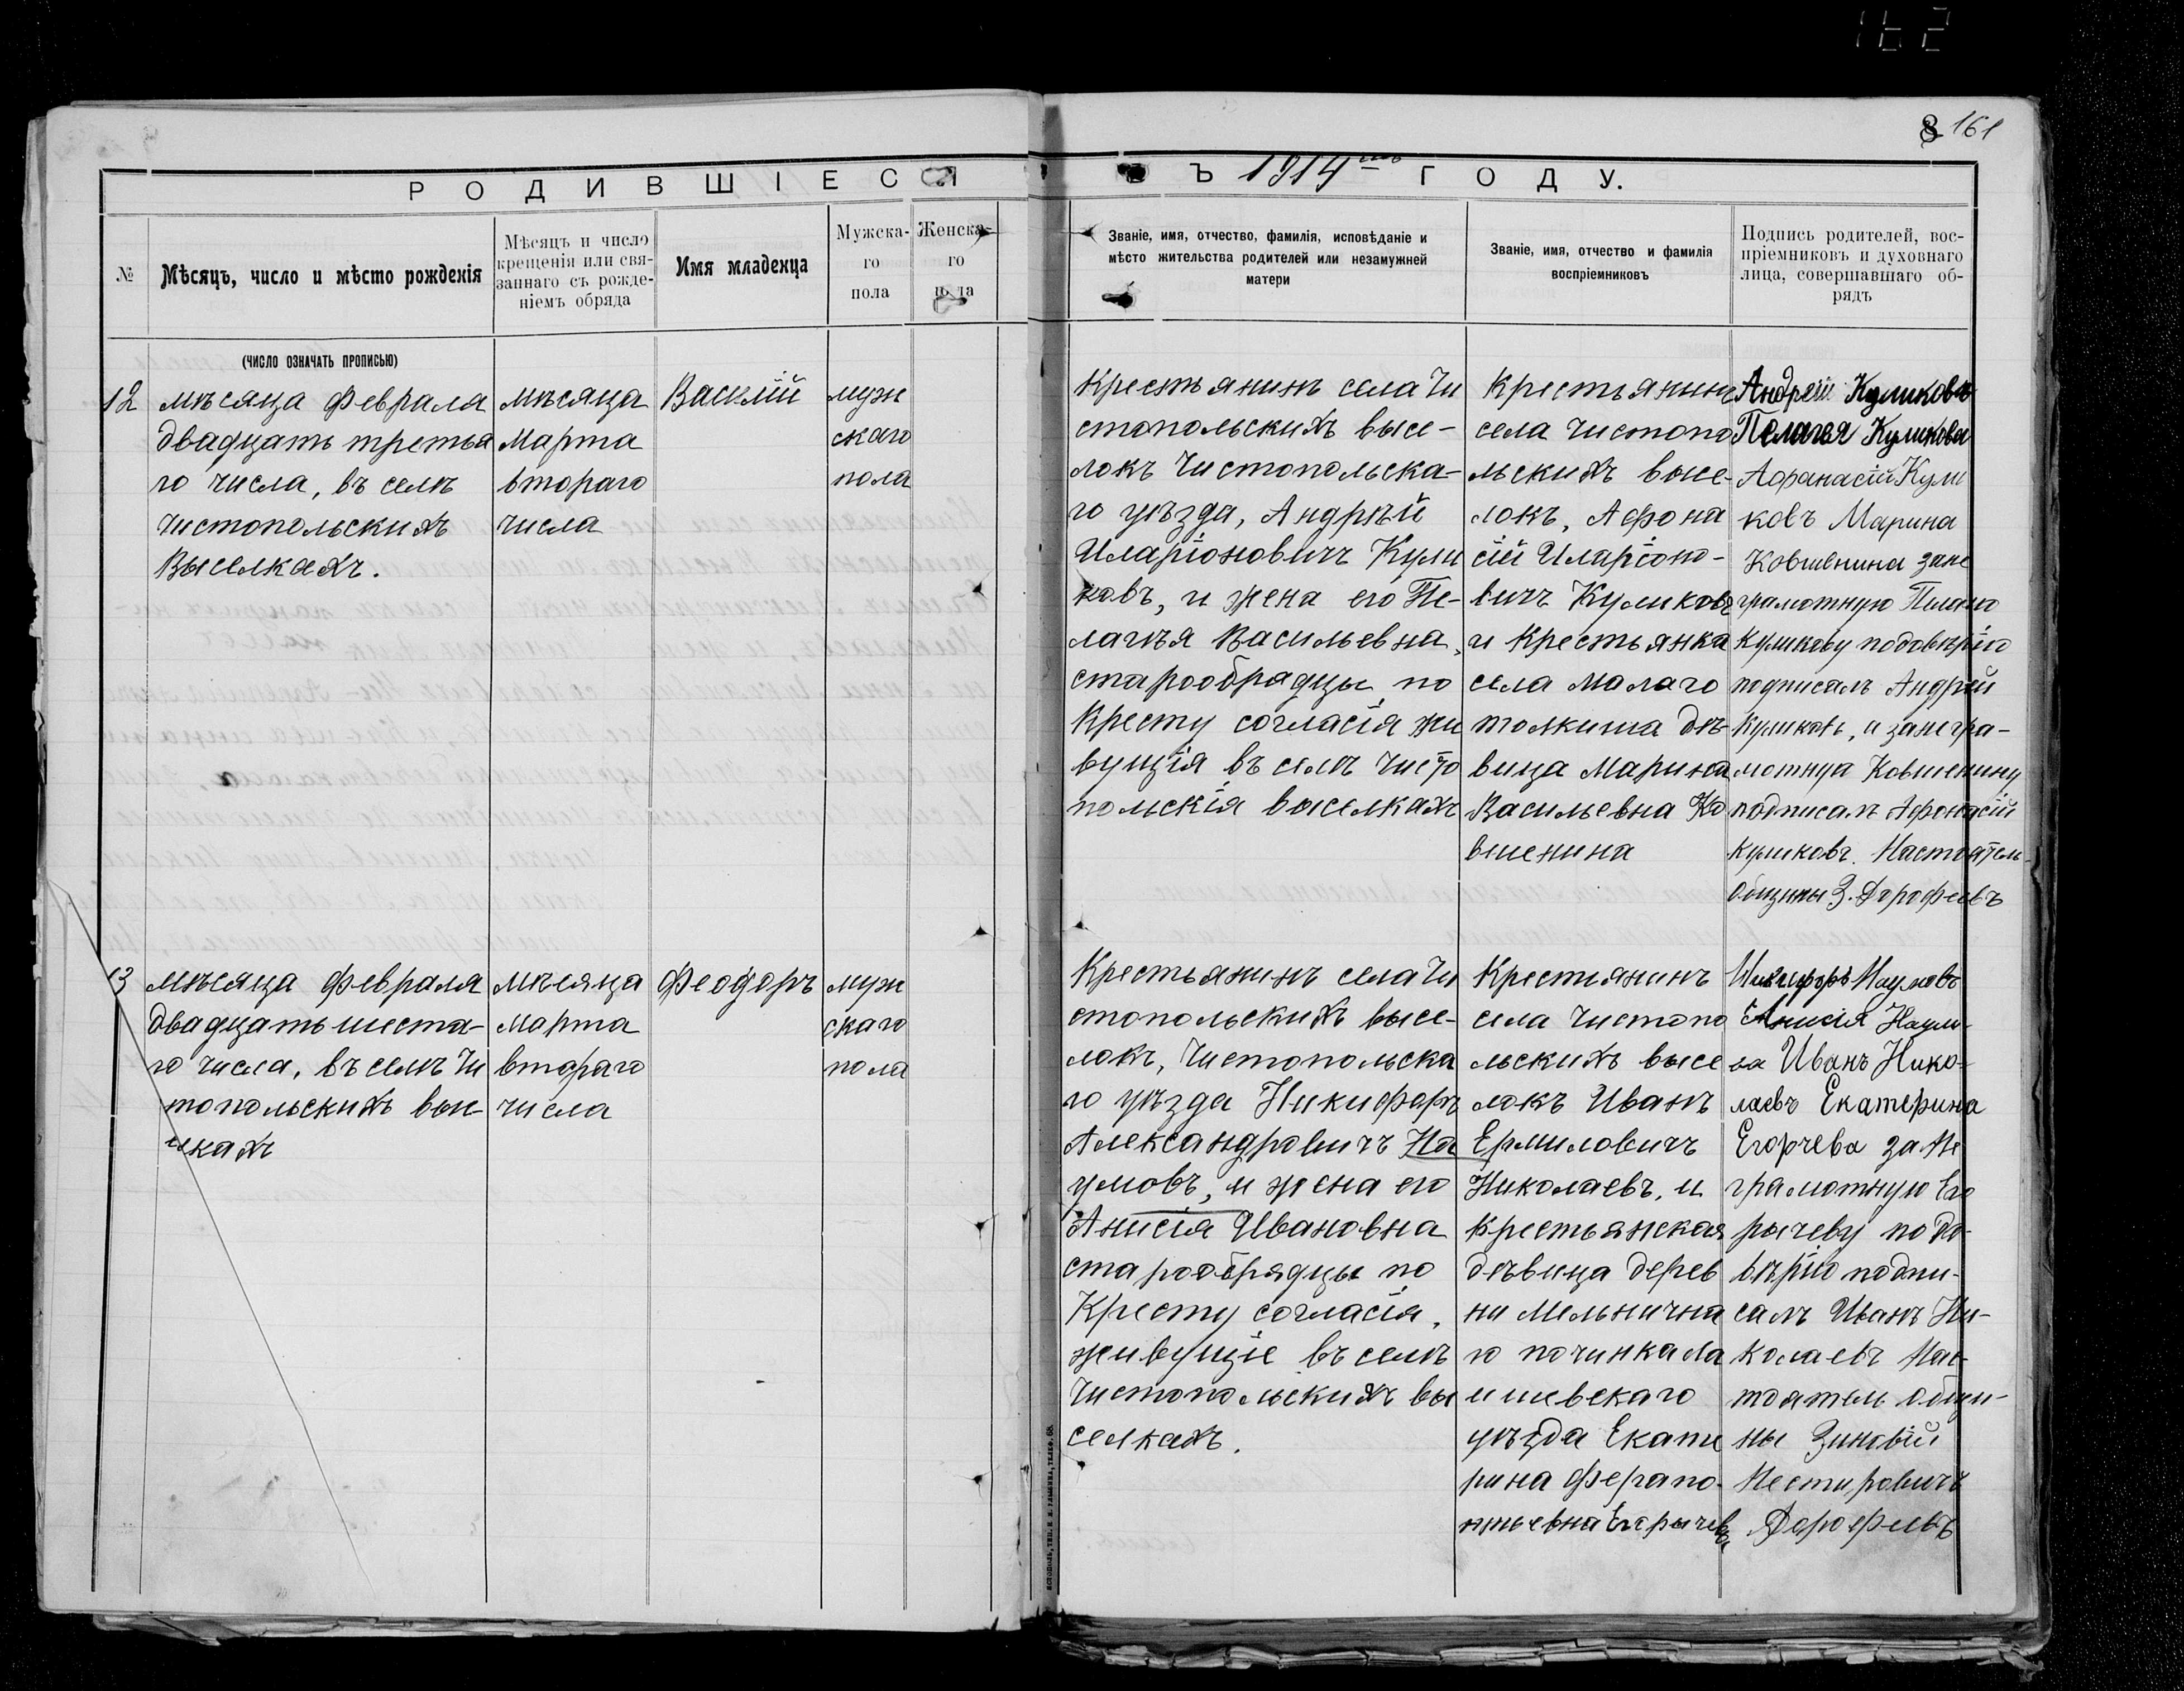 162
8 161
РОДИВШІЕСЯ ВЪ 1914 ГОДУ.
№
Мѣсяцъ, число и мѣсто рожденія
Мѣсяцъ и число
крещенія или свя-
заннаго съ рожде-
ніемъ обряда
Имя младенца
Мужска-
го
пола
Женска-
го
пола
Званіе, имя, отчество, фамилія, исповѣданіе и
мѣсто жительства родителей или незамужней
матери
Званіе, имя, отчество и фамилія
воспріемниковъ
Подпись родителей, вос-
пріемниковъ и духовнаго
лица, совершавшаго об-
рядъ
(ЧИСЛО ОЗНАЧАТЬ ПРОПИСЬЮ)
12
мѣсяца Февраля
двадцать третья
го числа, въ селѣ
Чистопольскихъ
Выселкахъ.
мѣсяца
Марта
втораго
числа
Василій
муж
скаго
пола
Крестьянинъ села Чи
стопольскихъ высе-
локъ Чистопольска-
го уѣзда, Андрѣй
Иларіоновичъ Кули
ковъ, и жена его Пе-
лагѣя Васильевна,
старообрядцы по
Кресту согласія жи
вущія въ селѣ Чисто
польскія выселкахъ
Крестьянинъ
села Чистопо
льскихъ высе-
локъ, Афона
сій Иларіоно-
вичъ Куликовъ
и Крестьянка
села Малаго
толкиша дѣ-
вица Марина
Васильевна Ко
вшенина
Андрей Куликовъ
Пелагея Куликова
Афанасій Кули
ковъ Марина
Ковшенина зане
грамотную Пелагю
Куликову подовѣрію
подписалъ Андрей
Куликовъ, и занегра-
мотную Ковшенину
подписалъ Афонасій
Куликовъ. Настоятель
общины З. Дорофеевъ
13
мѣсяца Февраля
двадцать шеста-
го числа, въ селѣ Чи
топольскихъ вы-
елкахъ
мѣсяца
Марта
втораго
числа
Феодоръ
муж
скаго
пола
Крестьянинъ села Чи
стопольскихъ высе-
локъ, Чистопольска
го уѣзда Никифоръ
Александровичъ На
умовъ, и жена его
Анисія Ивановна
старообрядцы по
Кресту согласія,
живущіе въ селѣ
Чистопольскихъ вы
селкахъ.
Крестьянинъ
села Чистопо
льскихъ высе
локъ Иванъ
Ермиловичъ
Николаевъ, и
Крестьянская
дѣвица дерев
ни Мельнична
го починка Ла
ишевскаго
уѣзда Екате
рина Ферапо-
нтьевна Егорычева
Никифоръ Наумовъ
Анисія Наумо-
ва Иванъ Нико-
лаевъ Екатерина
Егорчева за не
грамотную Его
рычеву по до-
вѣрію подпи-
салъ Иванъ Ни-
колаевъ Нас-
тоятель общи-
ны Зиновій
Несторовичъ
Дорофеевъ